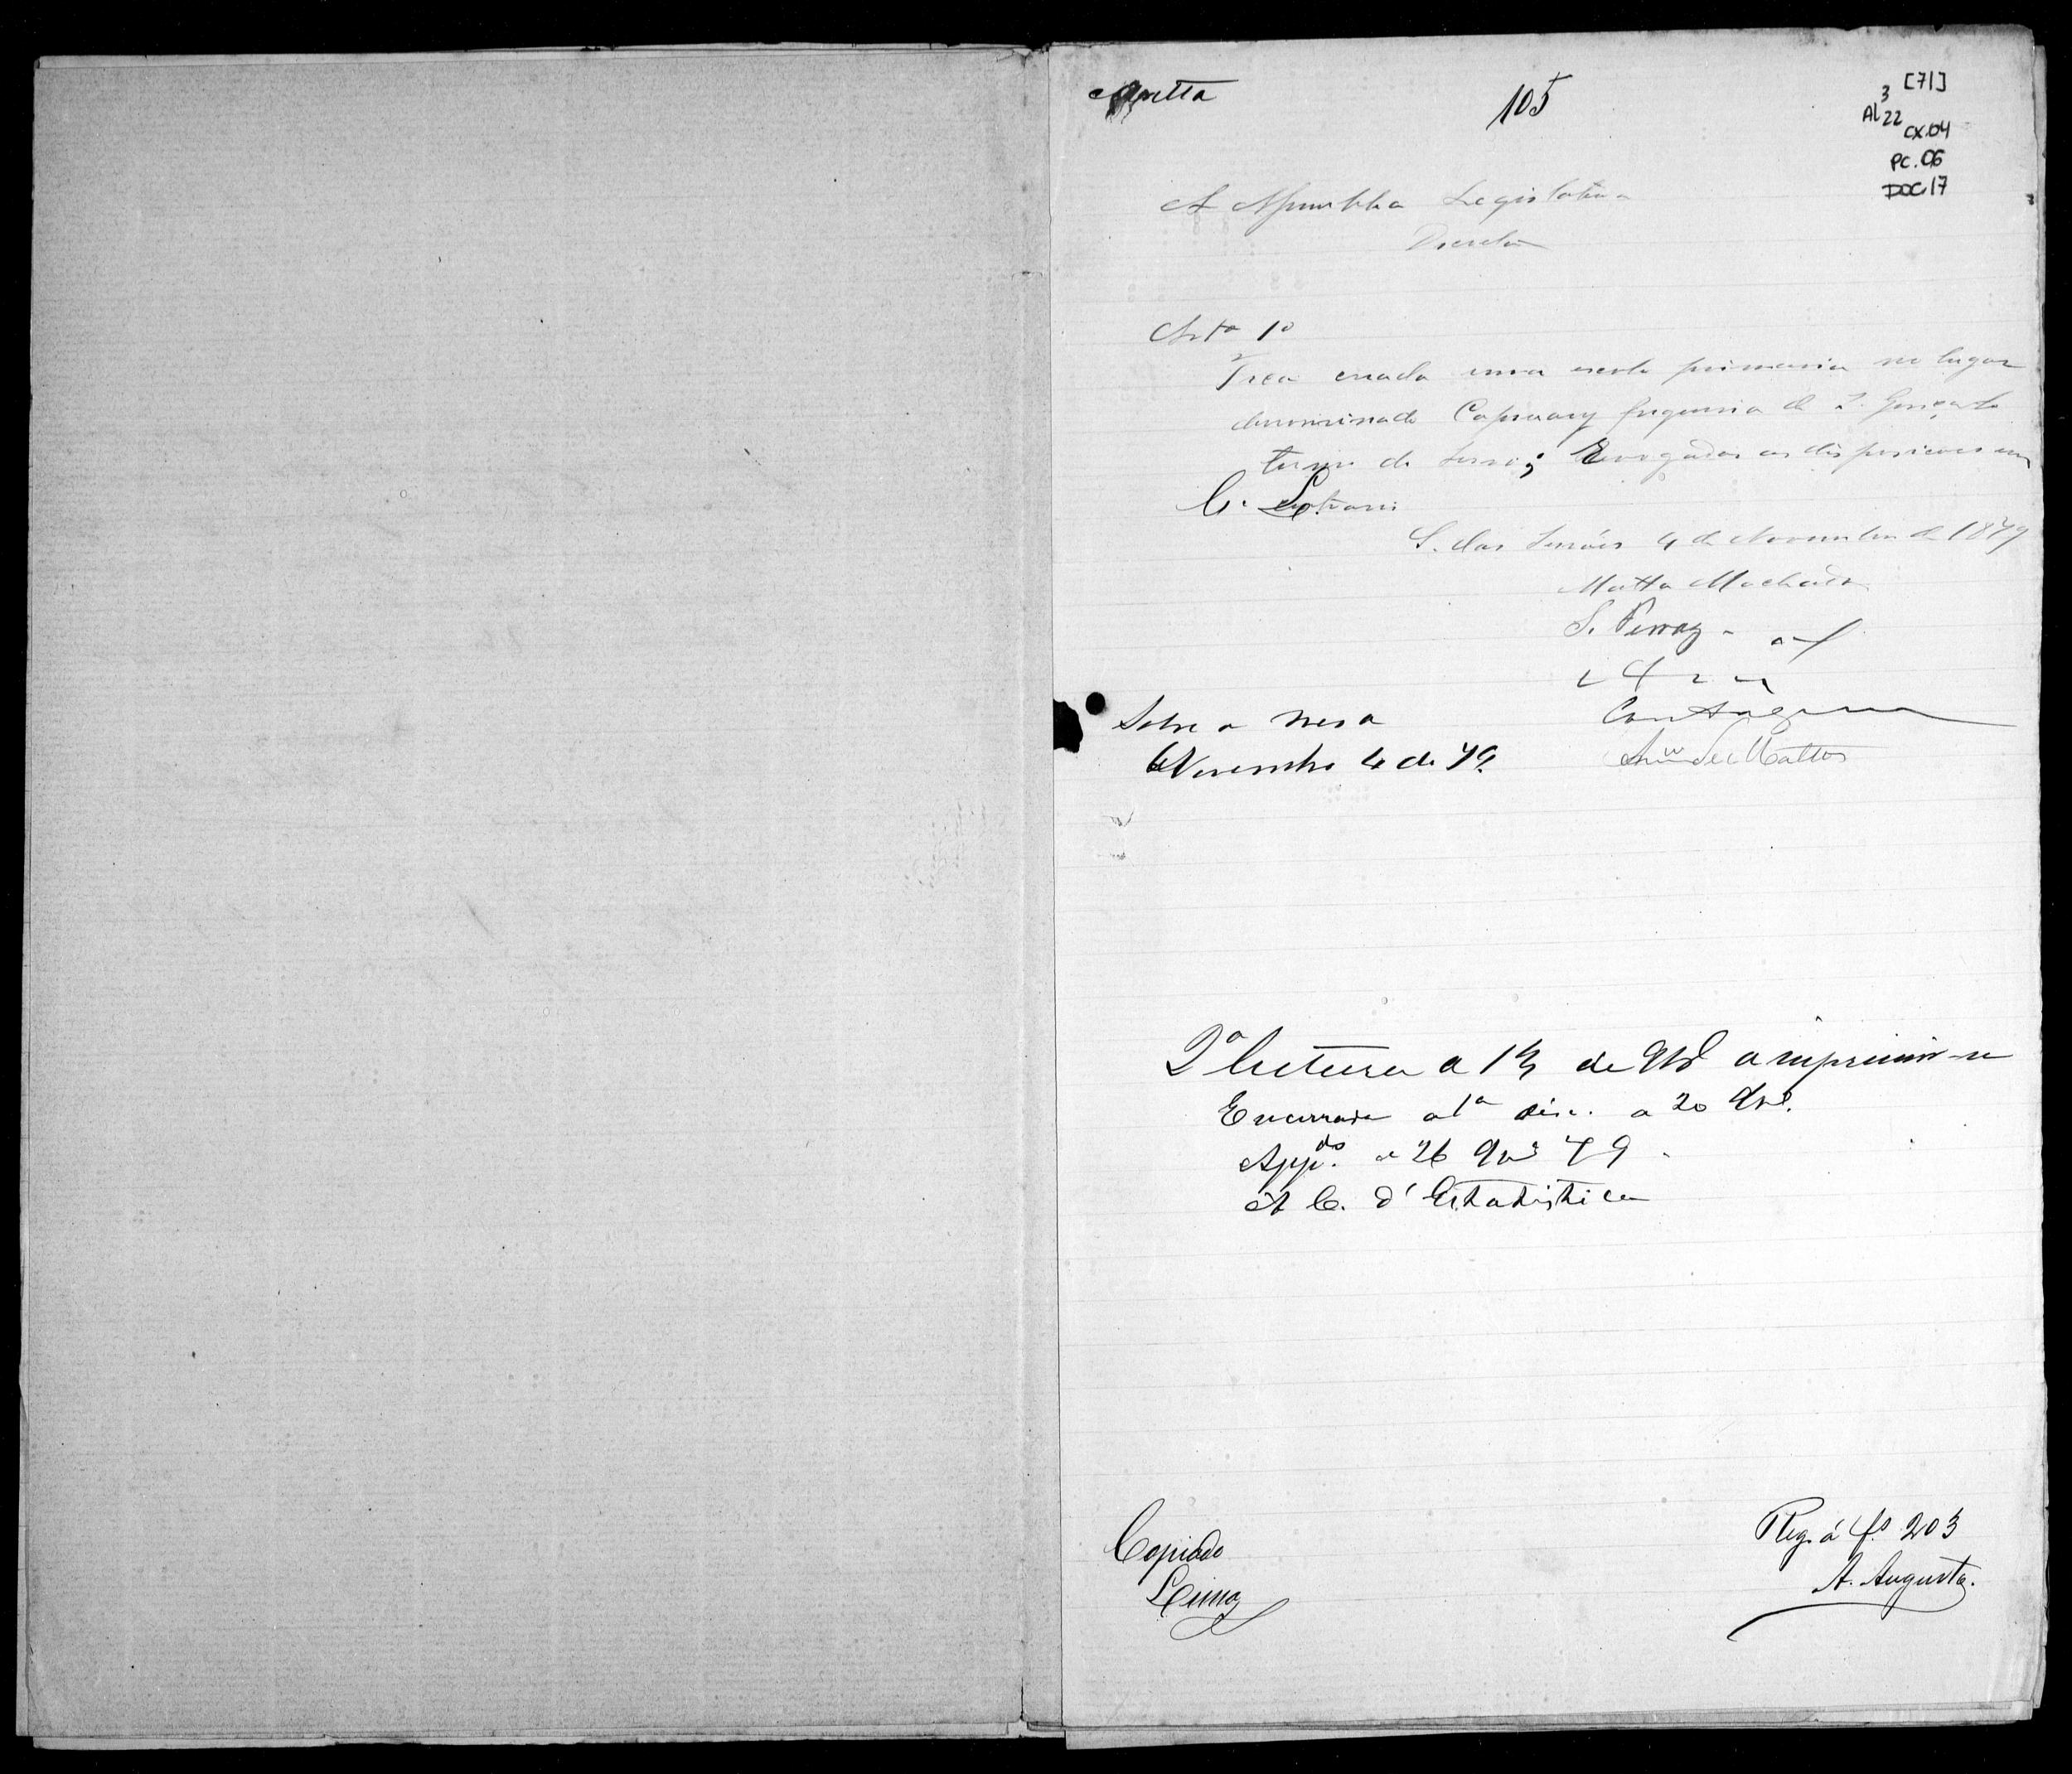 Matta
105
[71]
3
AL 22
CX.04
PC.06
DOC 17
A Assemblea Legislativa
Decreta
Art° 1°
Fica creada uma escola primaria no lugar
denominado Capivary freguesia de S. Gonçalo
termo do Serro; Revogadas as disposicoes em
Contrario
S. das Sessões 4 de Novembro de 1879
Matta Machado
S. Ferraz
Sobre a mesa
Novembro 4 de 79.
de Mattos
2ª leitura a 13 de 9bº a imprimir-se
Encerrada a 1ª disc. a 20 9bº.
Appdo. a 26 9bº 79
A C. d'Estatistica
Copiado
Lima
Reg. á fs 203
A. Augusto.